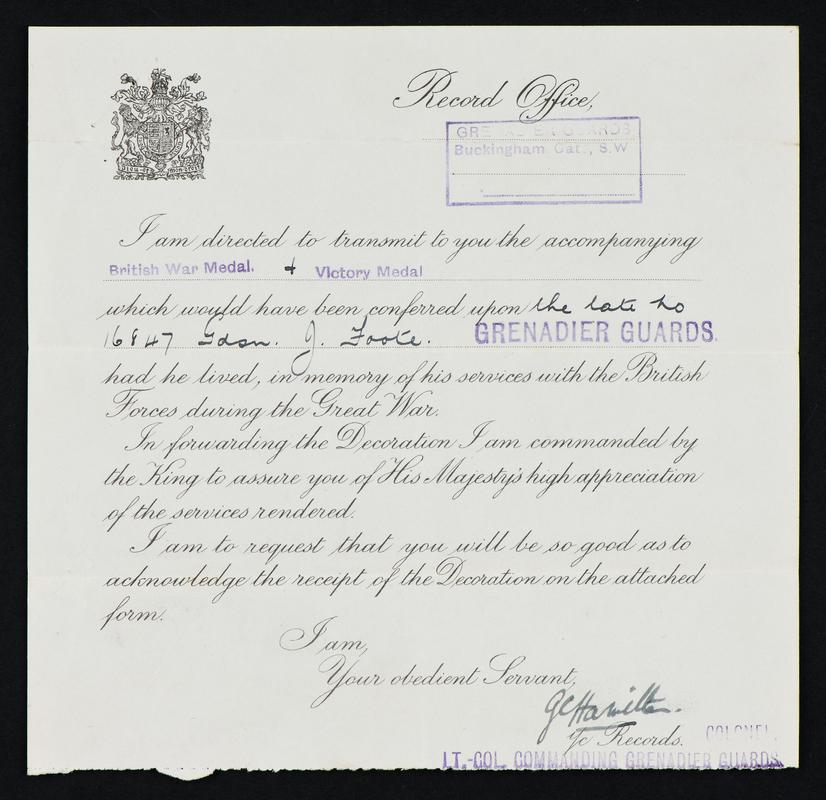 Record Office,
GRENADIER GUARDS
Buckingham Gate, S.W
I am directed to transmit to you the accompanying
British War Medal. + Victory Medal
which would have been conferred upon the late No
16847 Gdsn. J. Foote. GRENADIER GUARDS.
had he lived, in memory of his services with the British
Forces during the Great War.
In forwarding the Decoration I am commanded by
the King to assure you of His Majesty's high appreciation
of the services rendered.
I am to request that you will be so good as to
acknowledge the receipt of the Decoration on the attached
form.
I am,
Your obedient Servant,
GCHamilton.
i/c Records. COLONEL,
LT.-COL. COMMANDING GRENADIER GUARDS.